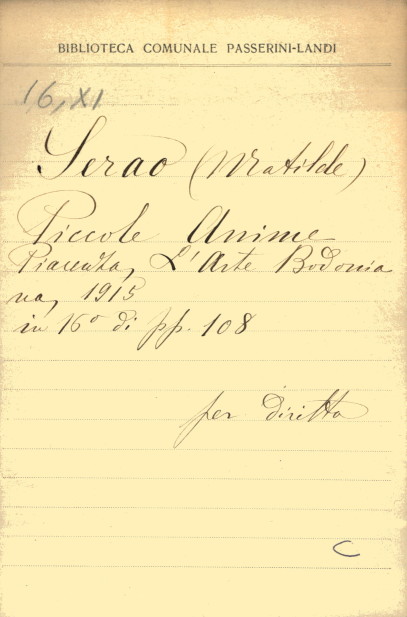 BIBLIOTECA COMUNALE PASSERINI-LANDI
16, XI
Serao (Matilde)
Piccole Anime
Piacenza, L'Arte Bodonia
na, 1915
in 16° di pp. 108
per diritto
C